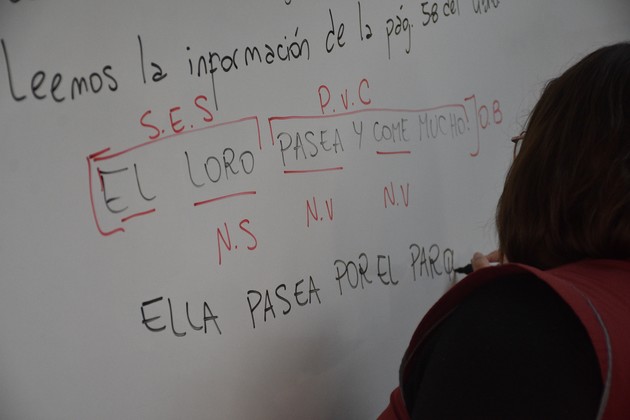 Leemos la información de la pág. 58 del
S.E.S P.V.C
EL LORO PASEA Y COME MUCHO! O.B
N.S N.V N.V
ELLA PASEA POR EL PARQ